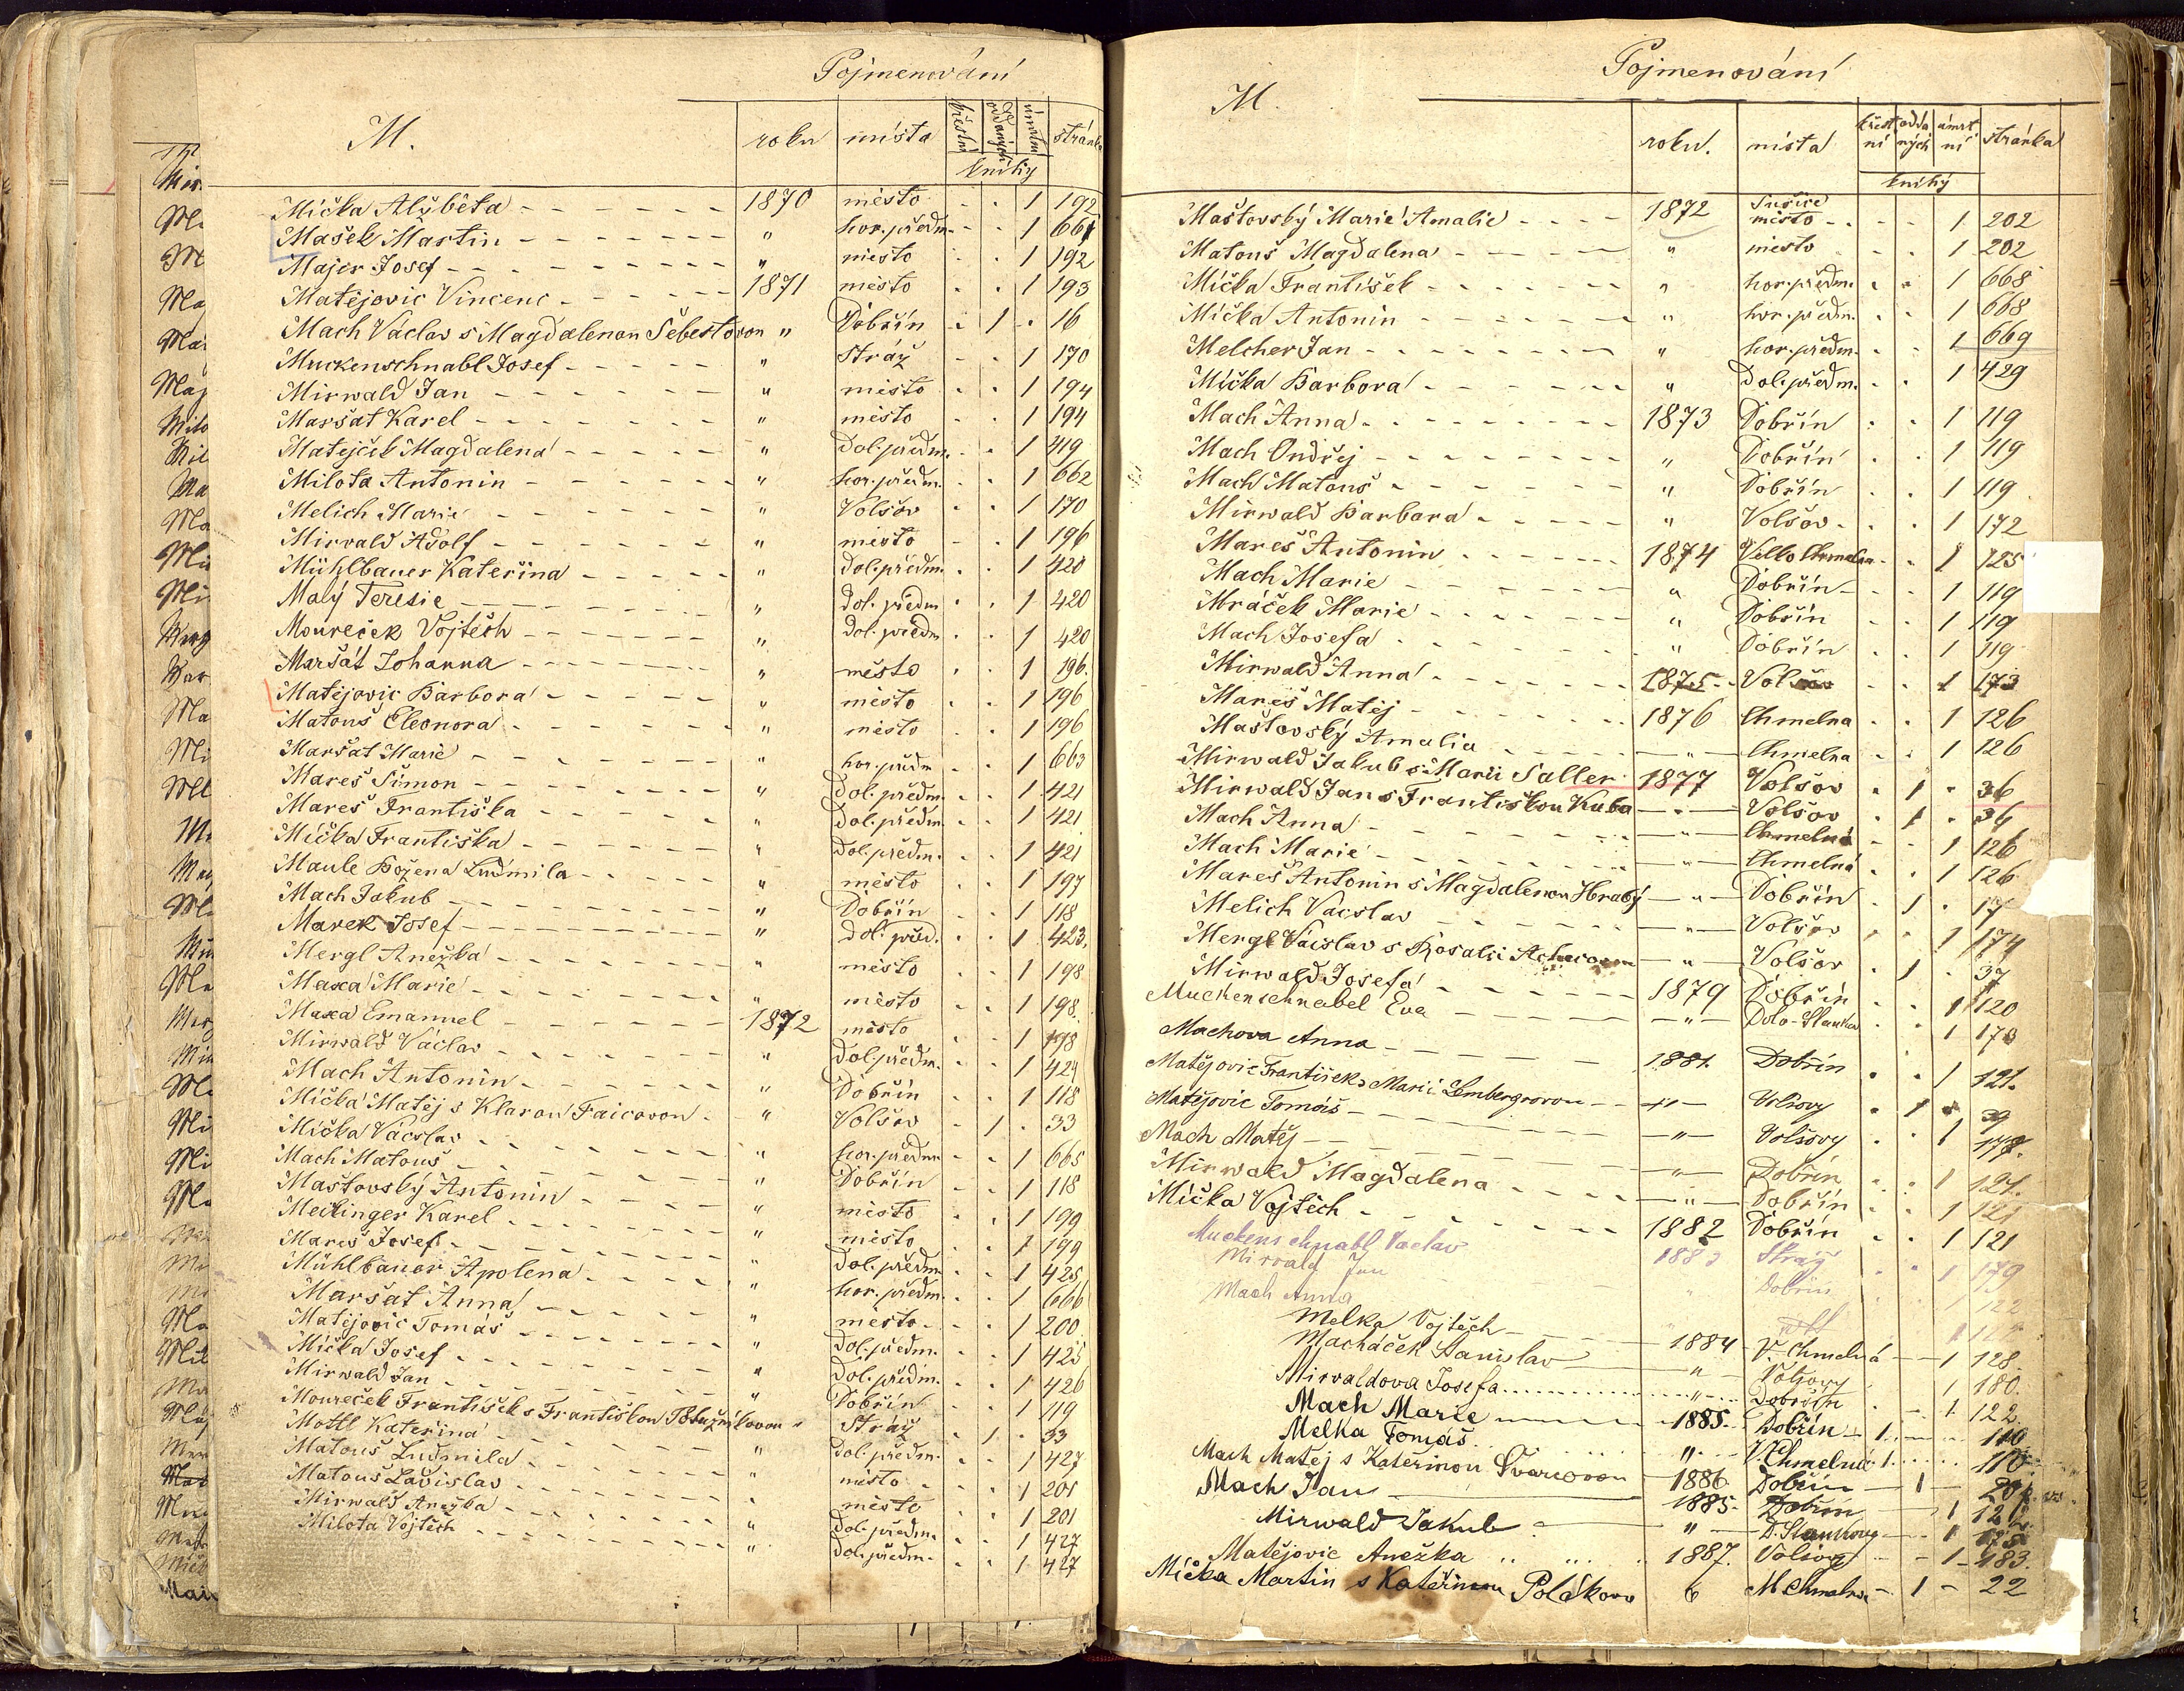 Pojmenování
M.
roku místa křestní oddaných úmrtní stránka
knihy
Míčka Alžběta 1870 město - - 1 192
Mašek Martin " hor. předm. - - 1 661
Majer Josef " město - - 1 192
Matějovic Vincenc 1871 město - - 1 193
Mach Václav s Magdalenou Šebestovou " Dobřín - 1 - 16
Muckenschnabl Josef " Stráž - - 1 170
Mirwald Jan " město - - 1 194
Maršat Karel " město - - 1 194
Matějček Magdalena " Dol. předm. - - 1 419
Milota Antonin " hor. předm. - - 1 662
Melich Marie " Volšov - - 1 170
Mirvald Adolf " město - - 1 196
Mühlbauer Kateřina " Dol. předm. - - 1 420
Malý Teresie " Dol. předm - - 1 420
Moureček Vojtěch " Dol. předm - - 1 420
Maršát Johanna " město - - 1 196.
Matějovic Barbora " město - - 1 196
Matouš Eleonora " město - - 1 196
Maršat Marie " hor. předm - - 1 663
Mareš Šimon " Dol. předm. - - 1 421
Mareš Františka " Dol. předm. - - 1 421
Míčka Františka " Dol. předm. - - 1 421
Maule Božena Ludmila " město - - 1 197
Mach Jakub " Dobřín - - 1 118
Marek Josef " Dol. před. - - 1 423.
Mergl Anežka " město - - 1 198
Maxa Marie " město - - 1 198.
Maxa Emanuel 1872 město - - 1 198
Mirwald Václav " Dol. předm. - - 1 424
Mach Antonin " Dobřín - - 1 118
Míčka Matěj s Klarou Faicovou " Volšov - 1 - 33
Míčka Václav " hor. předm - - 1 665
Mach Matouš " Dobřín - - 1 118
Maštovský Antonin " město - - 1 199
Meilinger Karel " město - - 1 199
Mareš Josef " Dol. předm - - 1 425
Mühlbauer Apolena " hor. předm. - - 1 666
Maršat Anna " město - - 1 200
Matějovic Tomáš " Dol. předm. - - 1 425
Míčka Josef " Dol. předm. - - 1 426
Mirwald Jan " Dobřín - - 1 119
Moureček František s Františkou " Stráž - 1 - 33
Mottl Kateřina " Dol. předm. - - 1 427
Matouš Ludmila " město - - 1 201
Matouš Ladislav " město - - 1 201
Mirwald Anežka " Dol. předm. - - 1 427
Milota Vojtěch " Dol. předm. - - 1 427
Pojmenování
M.
roku. místa křestní oddaných úmrtní stránka
knihy
Maštovský Marie Amalie 1872 Sušice město - - 1 202
Matouš Magdalena " město - - 1 202
Míčka František " hor. předm. - - 1 668
Míčka Antonin " hor. předm. - - 1 668
Melcher Jan " hor. předm. - - 1 669
Míčka Barbora " Dol. předm. - - 1 429
Mach Anna 1873 Dobřín - - 1 119
Mach Ondřej " Dobřín - - 1 119
Mach Matouš " Dobřín - - 1 119
Mirwald Barbara " Volšov - - 1 172
Mareš Antonin 1874 Chmelna - - 1 125
Mach Marie " Dobřín - - 1 119
Mráček Marie " Dobřín - - 1 119
Mach Josefa " Dobřín - - 1 119
Mirwald Anna 1875 Volšov - - 1 173
Mareš Matěj 1876 Chmelna - - 1 126
Maštovský Amalia " Chmelna - - 1 126
Mirwald Jakub s Marii Saller 1877 Volšov - 1 - 36
Mirwald Jan s Františkou Kuba " Volšov - 1 - 36
Mach Anna " Chmelná - - 1 126
Mach Marie " Chmelná - - 1 126
Mareš Antonin s Magdalenou Hrabý " Dobřín - 1 - 17
Melich Vacslav " Volšov - - 1 174
Mergl Václav s Rosalii " Volšov - 1 - 37
Mirwald Josefa 1879 Dobřín - - 1 120
Muckenschnabel Eva " Dolo-Stankov - - 1 178
Machova Anna 1881. Dobřín - - 1 121.
Matějovic František s Marií Lembergrovou " Volšovy - 1 - 39
Matějovic Tomáš " Volšovy - - 1 177.
Mach Matěj " Dobřín - - 1 121.
Mirwald Magdalena " Dobřín - - 1 121
Míčka Vojtěch 1882 Dobřín - - 1 121
Muckenschnabl Vaclav 1883 Stráž - - 1 179
Mirvald Jan " Dobřín 1 122
Mach Anna 1 122
Melka Vojtěch 1884 V. Chmelná - 1 128.
Macháček Stanislav " Volšovy 1 180.
Mirvaldova Josefa " Dobřín 1. 122.
Mach Marie 1885. Dobřín - 1 110
Melka Tomáš " V. Chmelná 1 118
Mach Matěj s Kateřinou Švarcovou 1886 Dobřín - 1 - 20
Mach Jan 1885. Dobřín 1
Mirwald Jakub " D. Stankovy - 1
Matějovic Anežka 1887. Volšovy - 1 183.
Míčka Martin s Kateřinou Polákova 6 M Chmelna - 1 - 22